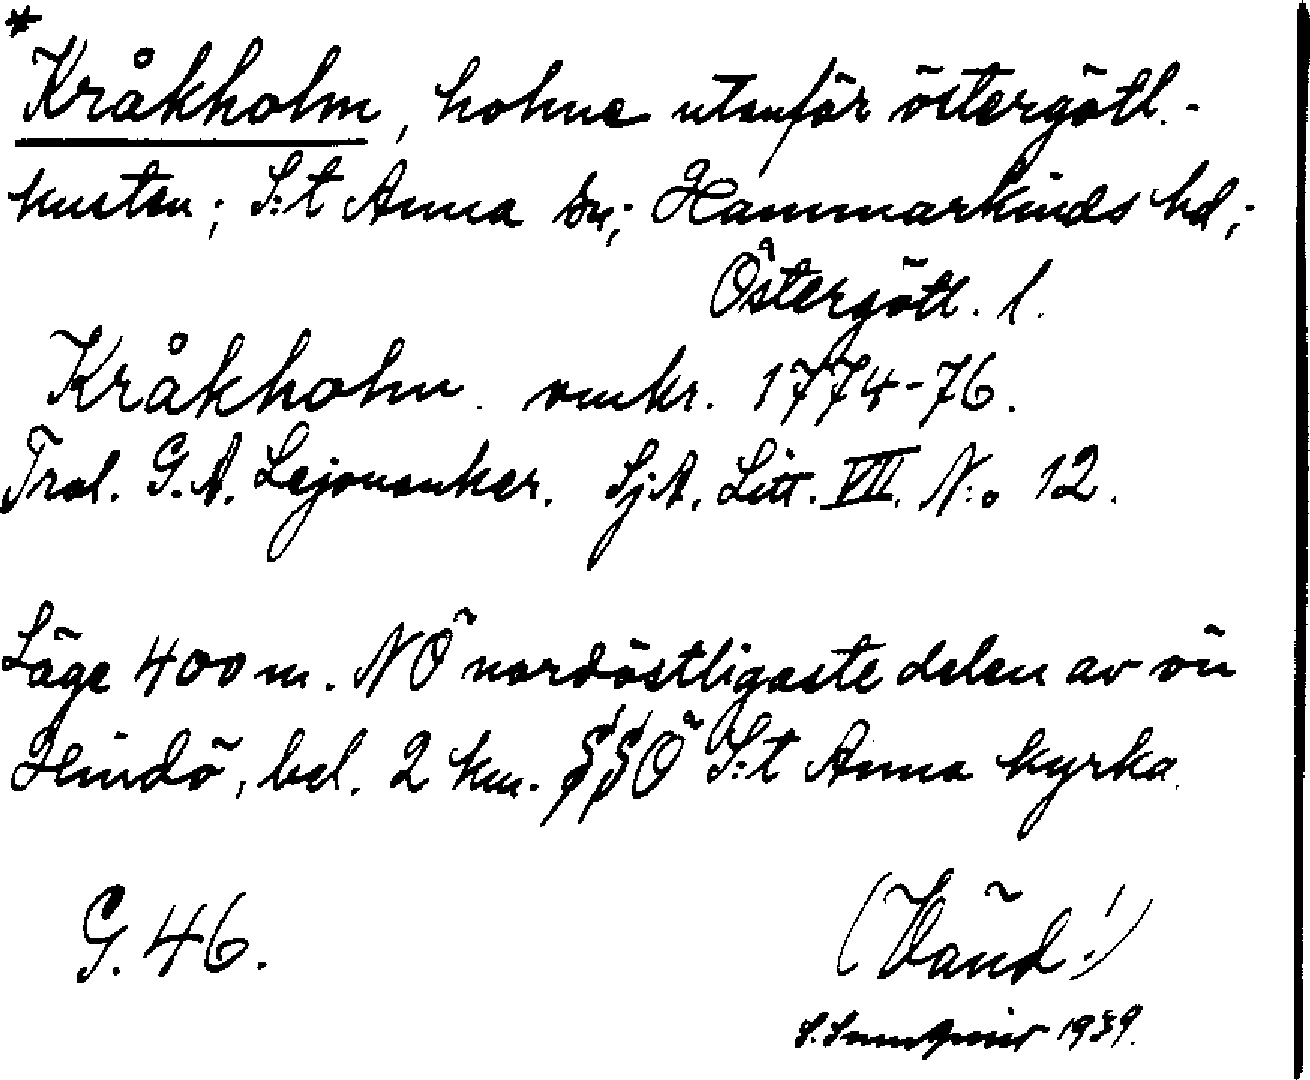 *
Kråkholm, holme utanför östergötl.-
kusten; S:t Anna sn; Hammarkinds hd;
Östergötl. l.
Kråkholm. omkr. 1774-76.
Trol. G.A. Lejonanker. SjA. Litt. VII. N:o 12.
Läge 400 m. NÖ nordöstligaste delen av ön
Hindö, bel. 2 km. SSÖ S:t Anna kyrka.
G. 46.
(Vänd!)
1939.